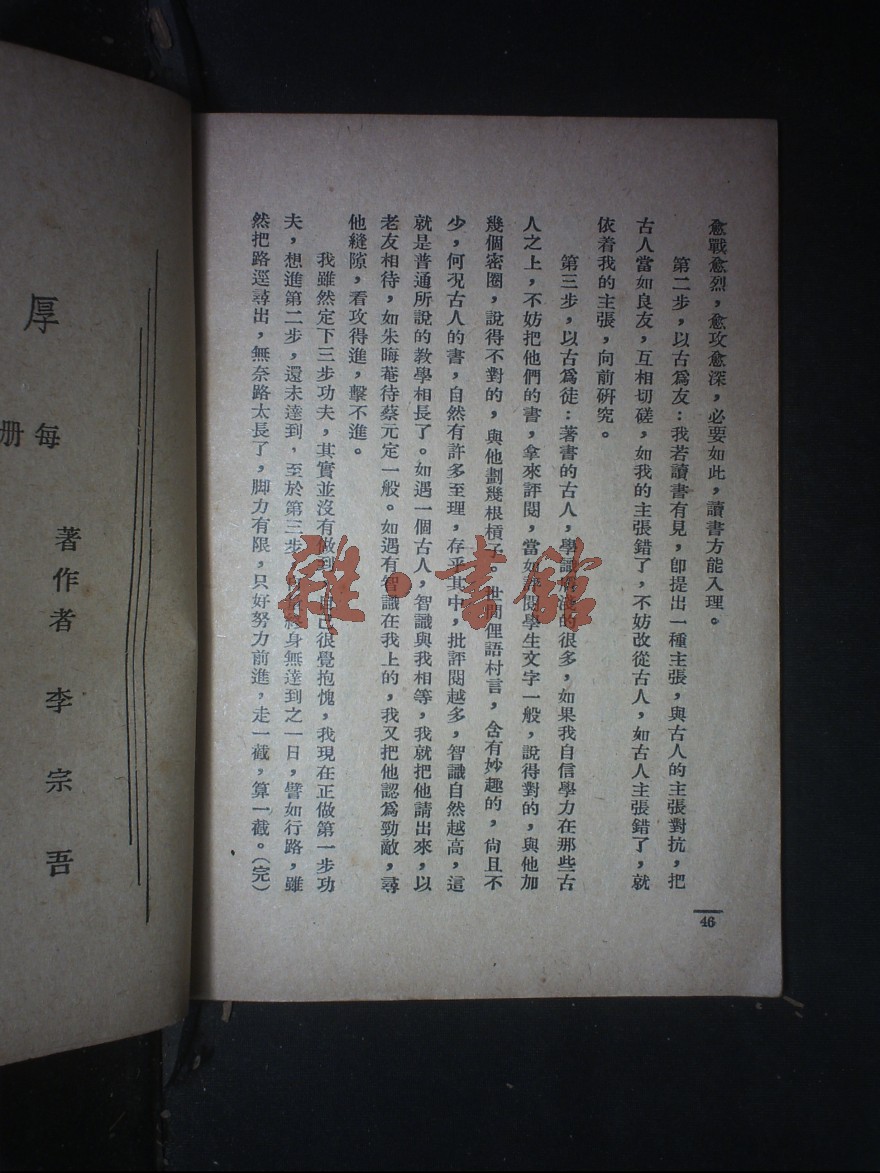 愈戰愈烈，愈攻愈深，必要如此，讀書方能入理。
第二步，以古爲友：我若讀書有見，卽提出一種主張，與古人的主張對抗，把
古人當如良友，互相切磋，如我的主張錯了，不妨改從古人，如古人主張錯了，就
依着我的主張，向前硏究。
第三步，以古爲徒：著書的古人，學識膚淺的很多，如果我自信學力在那些古
人之上，不妨把他們的書，拿來評閱，當如評閱學生文字一般，說得對的，與他加
幾個密圈，說得不對的，與他劃幾根槓子。世間俚語村言，含有妙趣的，尙且不
少，何况古人的書，自然有許多至理，存乎其中，批評閱越多，智識自然越高，這
就是普通所說的教學相長了。如遇一個古人，智識與我相等，我就把他請出來，以
老友相待，如朱晦菴待蔡元定一般。如遇有智識在我上的，我又把他認爲勁敵，尋
他縫隙，看攻得進，擊不進。
我雖然定下三步功夫，其實並沒有做到，自己很覺抱愧，我現在正做第一步功
夫，想進第二步，還未達到，至於第三步，終身無達到之一日，譬如行路，雖
然把路逕尋出，無奈路太長了，脚力有限，只好努力前進，走一截，算一截。（完）
46
雜·書館
厚
每
册
著作者 李宗吾